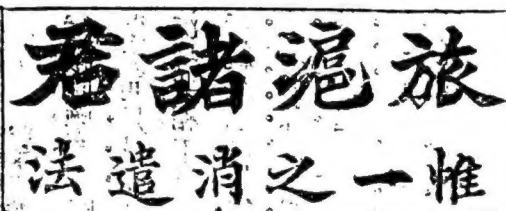 旅滬諸君
惟一之消遣法